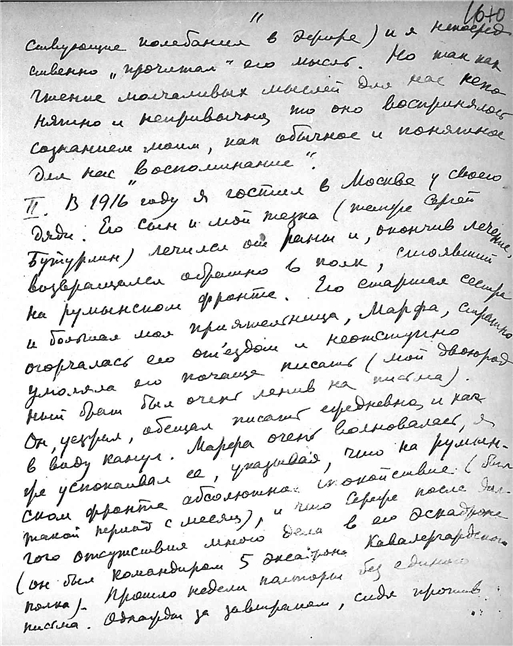 " 1640
ствующие колебания в эфире) и я непосред
ственно „прочитал" его мысль. Но так как
чтение молчаливых мыслей для нас непо
нятно и непривычно, то оно воспринялось
сознанием моим, как обычное и понятное
для нас „воспоминание".
II. В 1916 году я гостил в Москве у своего
дяди. Его сын и мой тезка (теперь Сергей
Бутурлин) лечился от раны и, окончив лечение,
возвращался обратно в полк, стоявший
на румынском фронте. Его старшая сестра
и большая моя приятельница, Марфа, страшно
огорчалась его от'ездом и неотступно
умоляла его почаще писать (мой двоюрод
ный брат был очень ленив на письма).
Он, уезжая, обещал писать ежедневно и как
в воду канул. Марфа очень волновалась, я
же успокаивал ее, указывая, что на румын-
ском фронте абсолютное спокойствие (был
такой период с месяц), и что Сереже после дол-
гого отсутствия много дела в его эскадроне
(он был командиром 5 эскадрона Кавалергардского
полка). Прошло недели полторы без единого
письма. Однажды за завтраком, сидя против